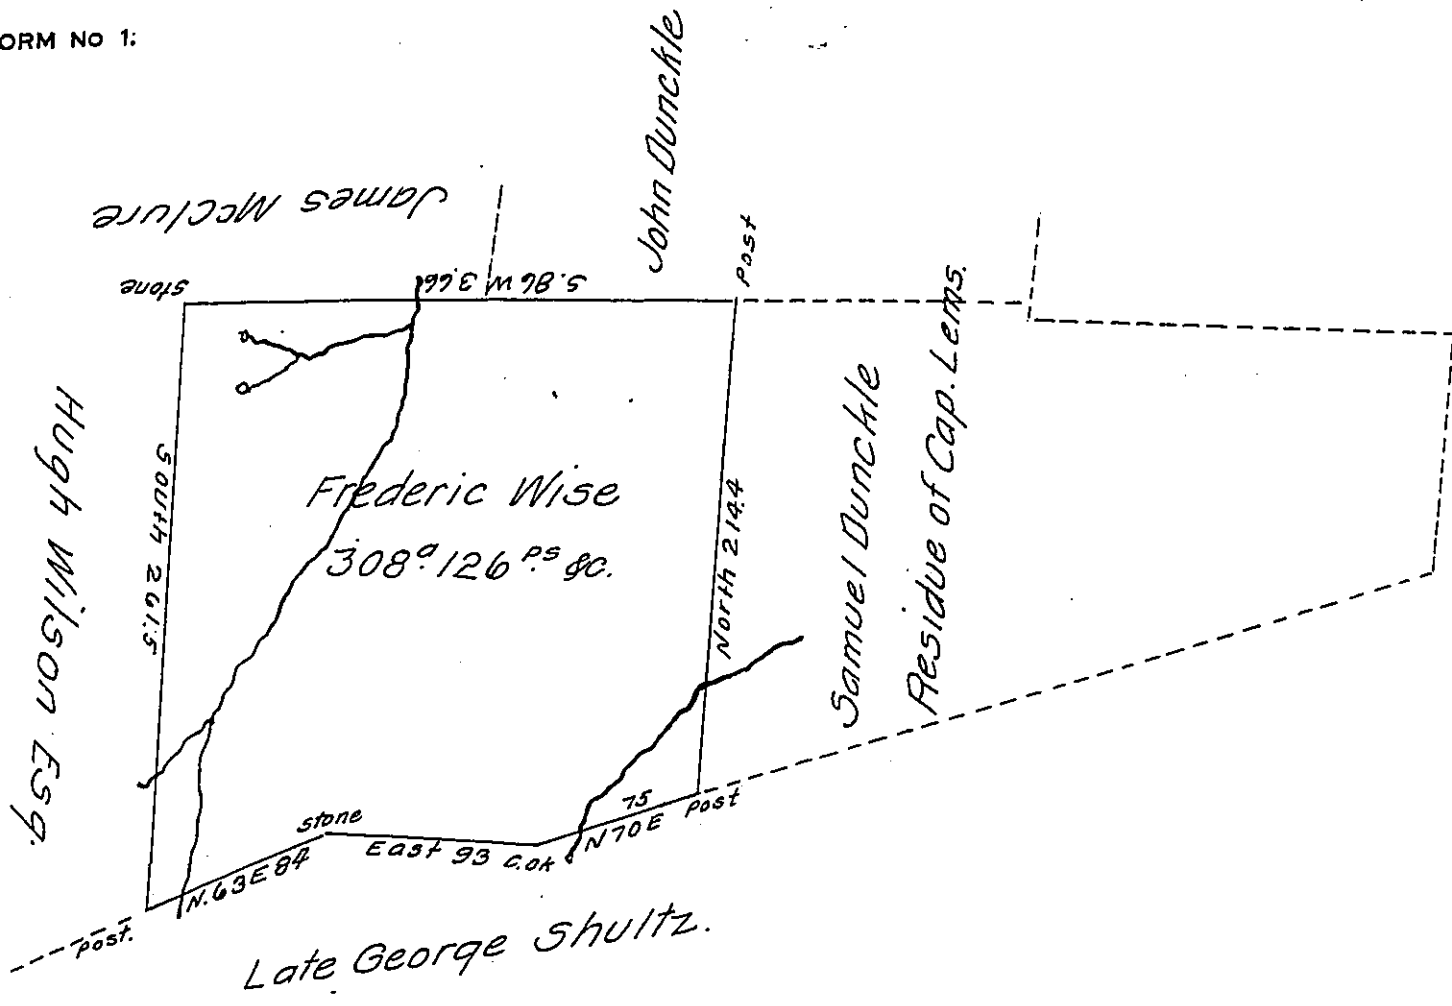 ORM No 1:
John Dunckle
James McClure
Post
stone
S. 86 W 3.66
Hugh Wilson Esq.
South 261.5
Frederic Wise
308a. 126 ps &c.
North 214.4
Samuel Dunckle
Residue of Cap. Lems.
stone
East 93
C.OK
75
N 70 E
Post
N. 63 E 84
Post.
Late George Shultz.